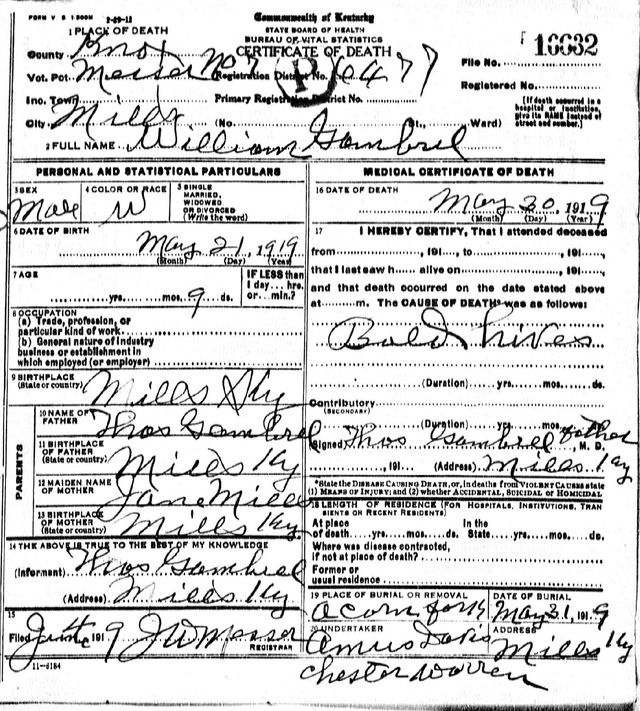 FORM V S 1-500M 2-29-12
Commonwealth of Kentucky
STATE BOARD OF HEALTH
BUREAU OF VITAL STATISTICS
CERTIFICATE OF DEATH
1 PLACE OF DEATH
County Knox
File No. 16632
Vot. Pct. Messer No 7 Registration District No. 10477
Registered No.
Inc. Town Primary Registration District No.
(If death occurred in a hospital or institution, give its NAME instead of street and number.)
City Mills (No. St., Ward)
2 FULL NAME William Gambrel
PERSONAL AND STATISTICAL PARTICULARS
3 SEX Male
4 COLOR OR RACE W
5 SINGLE MARRIED, WIDOWED OR DIVORCED (Write the word)
6 DATE OF BIRTH
May 21, 1919
(Month) (Day) (Year)
7 AGE
yrs. mos. 9 ds.
IF LESS than 1 day... hrs. or... min.?
8 OCCUPATION
(a) Trade, profession, or particular kind of work
(b) General nature of industry business or establishment in which employed (or employer)
9 BIRTHPLACE (State or country) Mills Ky
PARENTS
10 NAME OF FATHER Thos Gambrel
11 BIRTHPLACE OF FATHER (State or country) Mills Ky
12 MAIDEN NAME OF MOTHER Jane Mills
13 BIRTHPLACE OF MOTHER (State or country) Mills Ky
14 THE ABOVE IS TRUE TO THE BEST OF MY KNOWLEDGE
(Informant) Thos Gambrel
(Address) Mills Ky
15
Filed 191 9 J W Messer
REGISTRAR
11-6184
MEDICAL CERTIFICATE OF DEATH
16 DATE OF DEATH
May 30, 1919
(Month) (Day) (Year)
17 I HEREBY CERTIFY, That I attended deceased
from , 191 , to , 191 ,
that I last saw h alive on , 191 ,
and that death occurred on the date stated above
at m. The CAUSE OF DEATH* was as follows:
Bold hives
(Duration) yrs. mos. ds.
Contributory
(SECONDARY)
(Duration) yrs. mos. ds.
Signed Thos Gambrel father M. D.
, 191 (Address) Mills Ky
*State the DISEASE CAUSING DEATH, or, in deaths from VIOLENT CAUSES state (1) MEANS OF INJURY; and (2) whether ACCIDENTAL, SUICIDAL OR HOMICIDAL
18 LENGTH OF RESIDENCE (FOR HOSPITALS, INSTITUTIONS, TRANSIENTS OR RECENT RESIDENTS)
At place of death yrs. mos. ds. In the State yrs. mos. ds.
Where was disease contracted, if not at place of death?
Former or usual residence
19 PLACE OF BURIAL OR REMOVAL Acorn fork
DATE OF BURIAL May 31, 191 9
20 UNDERTAKER Amus Davis
ADDRESS Mills Ky
Chester Warren